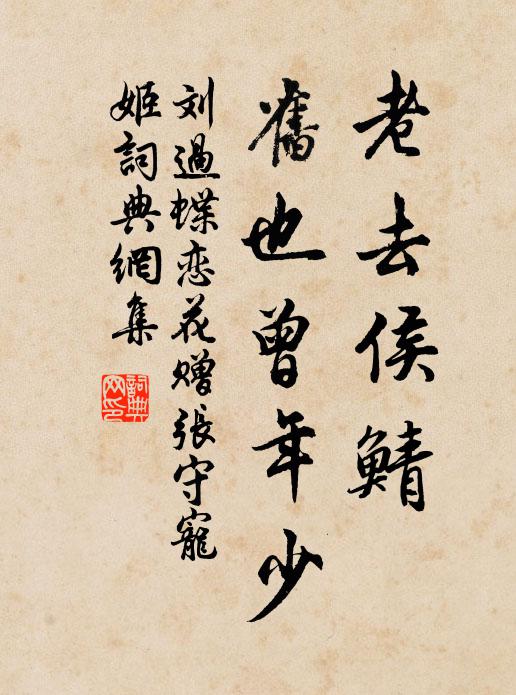 老去侯鯖
舊也曾年少
刘過蝶恋花赠張守寵
姬詞典網集
詞典
网印